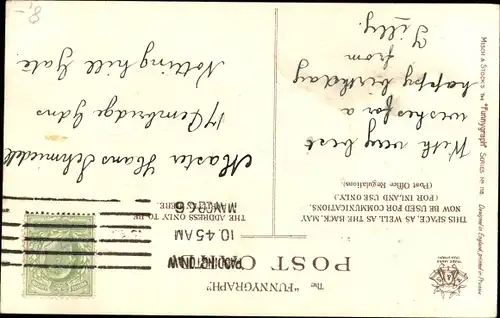 The "FUNNYGRAPH"
POST C
THIS SPACE, AS WELL AS THE BACK, MAY
NOW BE USED FOR COMMUNICATIONS.
(FOR INLAND USE ONLY.)
(Post Office Regulations).
THE ADDRESS ONLY TO BE
With very best
wishes for a
happy birthday
from
Tilly.
PADDINGTON.W
10.45 AM
Master Hans Schmiedel
17 Pembridge Gdns
Notting hill Gate.
MISCH & STOCK'S THE "Funnygraph" SERIES Nº 118 Designed in England, printed in Prussia
-8